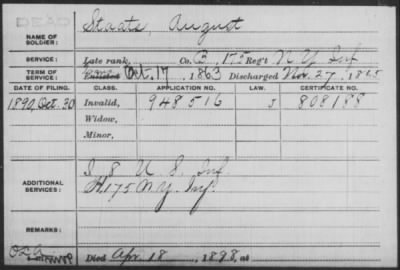 DEAD
NAME OF SOLDIER: Staats, August
SERVICE: Late rank, Co. B, 175 Reg't N. Y. Inf
TERM OF SERVICE: Enlisted Oct. 17, 1863 Discharged Nov. 27, 1865
DATE OF FILING. CLASS. APPLICATION NO. LAW. CERTIFICATE NO.
1890, Oct. 30 Invalid, 948516 J 808188
Widow,
Minor,
ADDITIONAL SERVICES:
I, 8 U. S. Inf.
H, 175 N. Y. Inf.
REMARKS:
Died Apr. 18, 1898, at